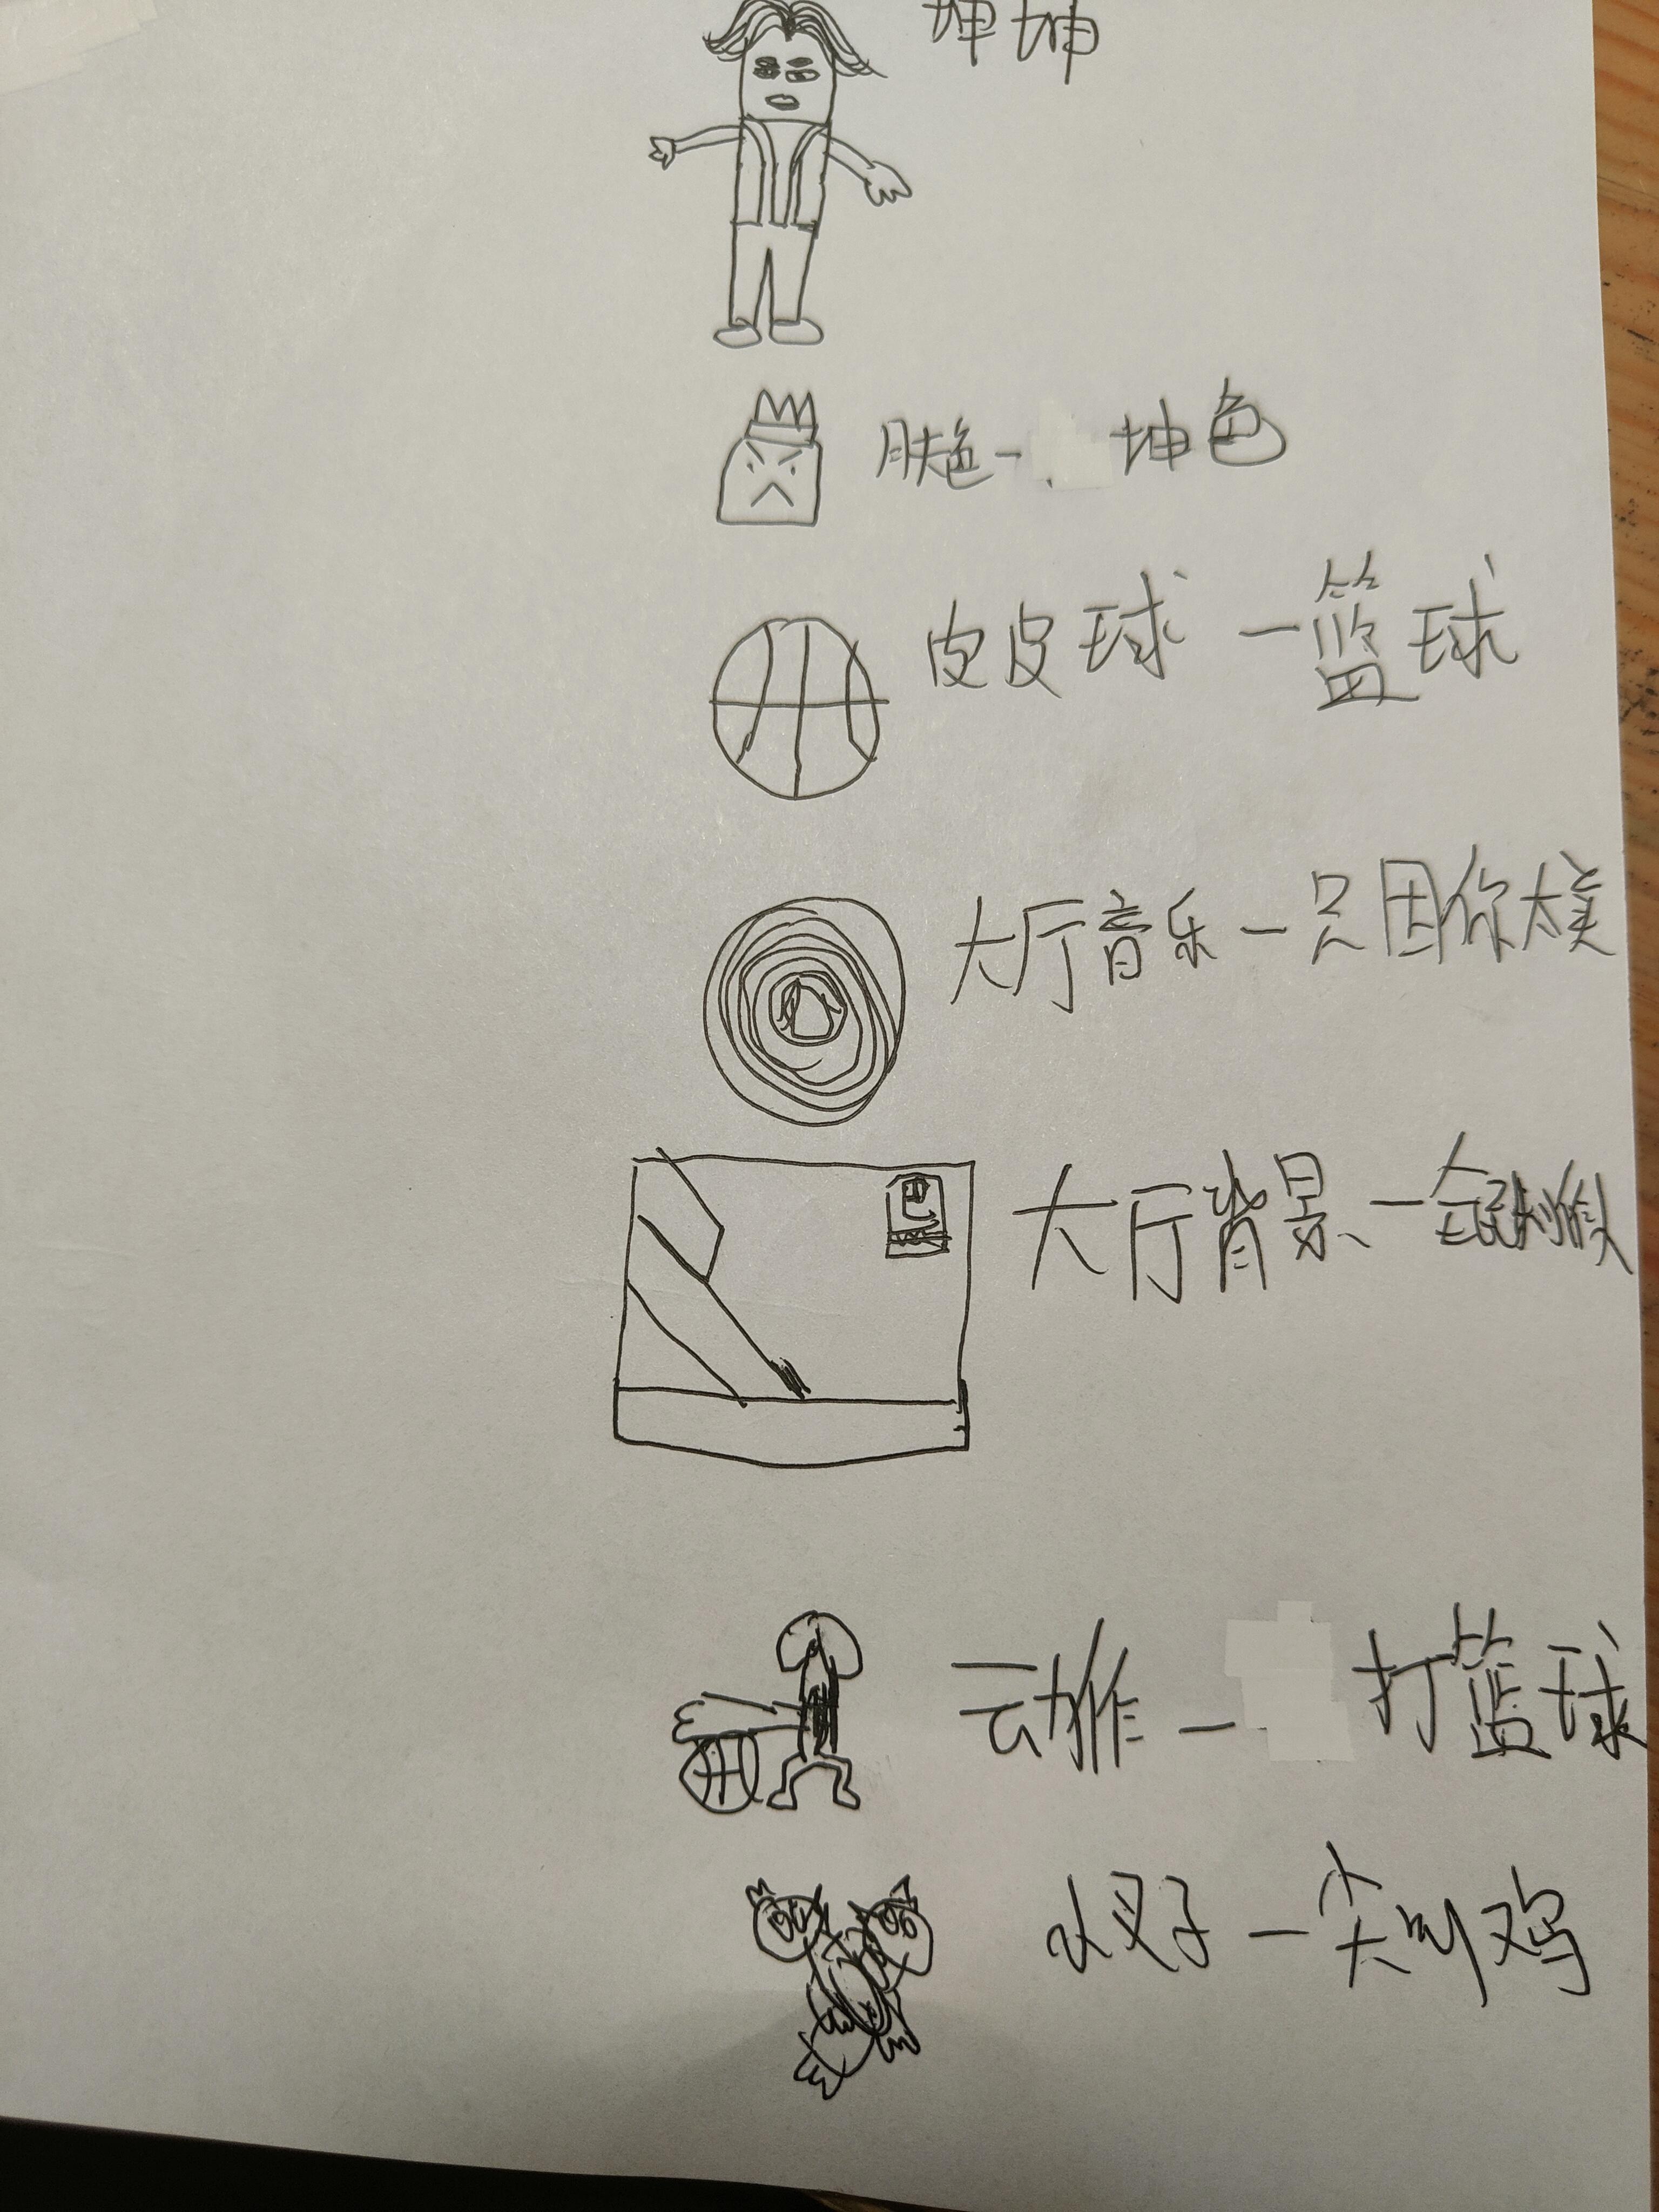 坤坤
肤色- 坤色
皮皮球-篮球
大厅音乐-只因你太美
大厅背景-
动作- 打篮球
叉子-尖叫鸡